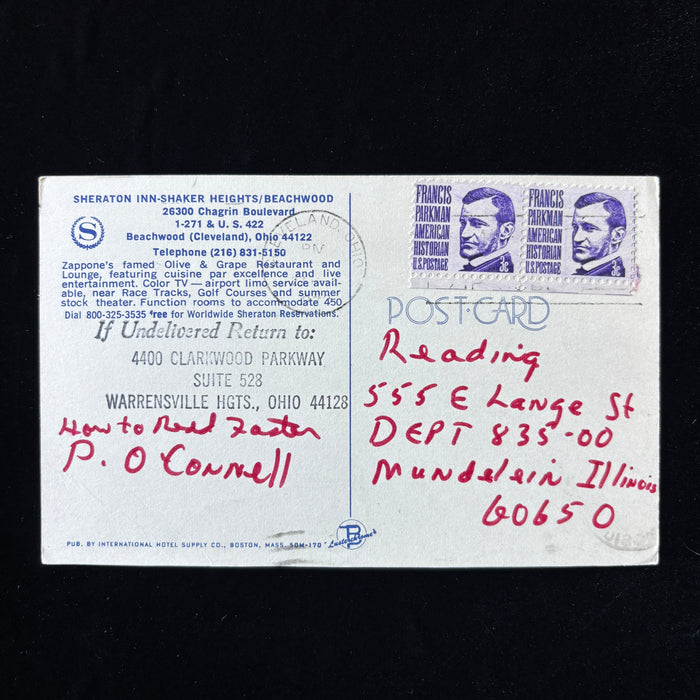 SHERATON INN-SHAKER HEIGHTS/BEACHWOOD
26300 Chagrin Boulevard
1-271 & U.S. 422
Beachwood (Cleveland), Ohio 44122
Telephone (216) 831-5150
Zappone's famed Olive & Grape Restaurant and
Lounge, featuring cuisine par excellence and live
entertainment. Color TV — airport limo service avail-
able, near Race Tracks, Golf Courses and summer
stock theater. Function rooms to accommodate 450
Dial 800-325-3535 free for Worldwide Sheraton Reservations.
If Undelivered Return to:
4400 CLARKWOOD PARKWAY
SUITE 528
WARRENSVILLE HGTS., OHIO 44128
How to Read Faster
P. O'Connell
PUB. BY INTERNATIONAL HOTEL SUPPLY CO., BOSTON, MASS. 50M-170
Lusterchrome
S
CLEVELAND, OHIO
PM
FRANCIS
PARKMAN
AMERICAN
HISTORIAN
U.S. POSTAGE
3¢
FRANCIS
PARKMAN
AMERICAN
HISTORIAN
U.S. POSTAGE
3¢
POST CARD
Reading
555 E Lange St
DEPT 835-00
Mundelein Illinois
60650